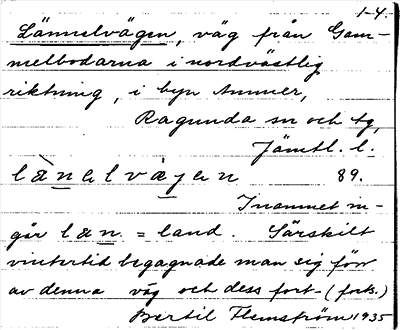 1-4.
Lännelvägen, väg från Gam-
melbodarna i nordvästlig
riktning, i byn Ammer,
Ragunda sn och tg,
Jämtl. l.
länelvàjen 89.
I namnet in-
går län = land. Särskilt
vintertid begagnade man sig förr
av denna väg och dess fort- (forts.)
Bertil Flemström 1935